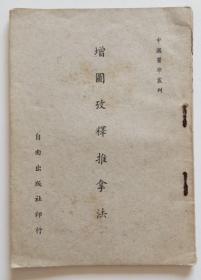 中國醫學叢刊
增圖攷釋推拿法
自由出版社印行